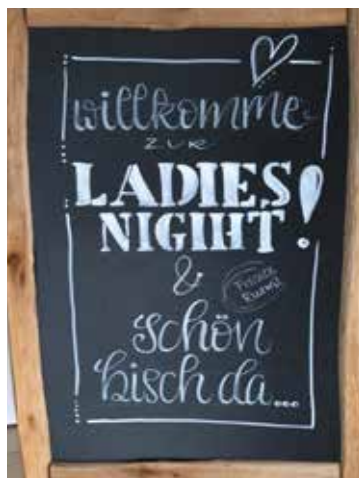 willkomme
ZUR
LADIES
NIGHT!
&
schön
bisch da...